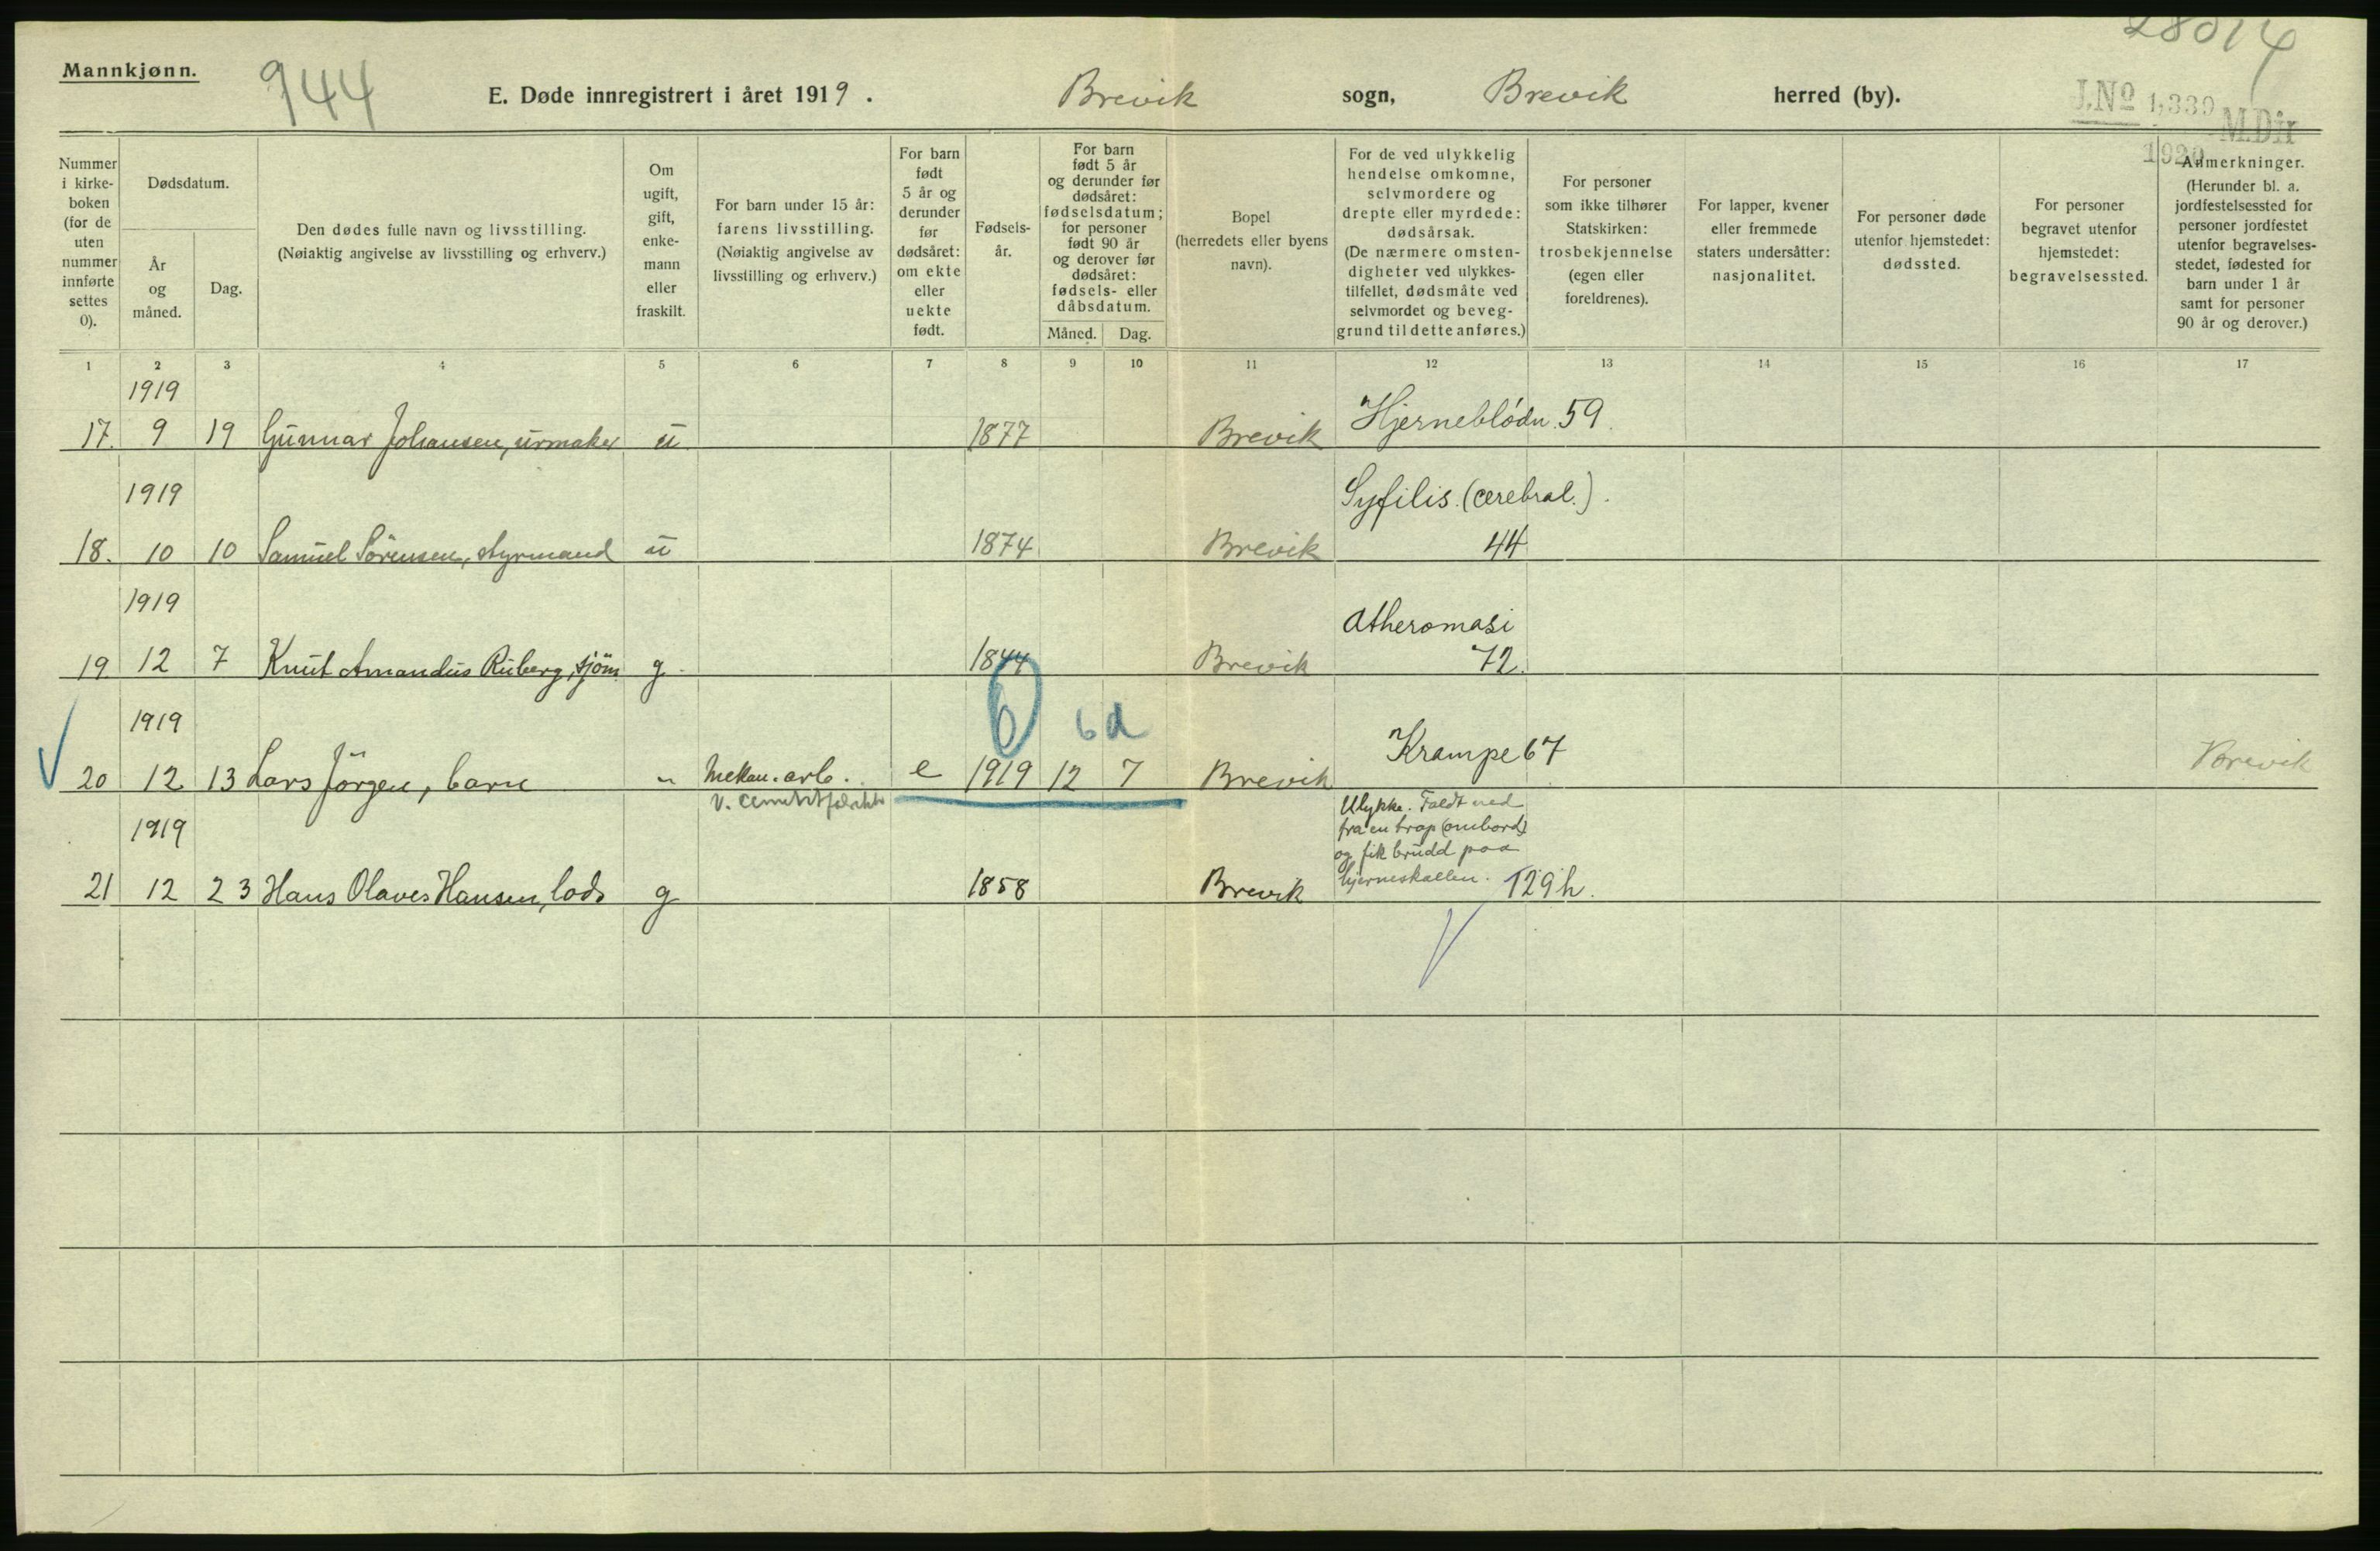 28014
Mannkjønn.
944
E. Døde innregistrert i året 1919.
Brevik sogn, Brevik herred (by).
J.Nº 1,339 M.Dir
1920
Nummer
i kirke-
boken
(for de
uten
nummer
innførte
settes
0).
Dødsdatum.
År
og
måned.
Dag.
Den dødes fulle navn og livsstilling.
(Nøiaktig angivelse av livsstilling og erhverv.)
Om
ugift,
gift,
enke-
mann
eller
fraskilt.
For barn under 15 år:
farens livsstilling.
(Nøiaktig angivelse av
livsstilling og erhverv.)
For barn
født
5 år og
derunder
før
dødsåret:
om ekte
eller
uekte
født.
Fødsels-
år.
For barn
født 5 år
og derunder før
dødsåret:
fødselsdatum;
for personer
født 90 år
og derover før
dødsåret:
fødsels- eller
dåbsdatum.
Måned. Dag.
Bopel
(herredets eller byens
navn).
For de ved ulykkelig
hendelse omkomne,
selvmordere og
drepte eller myrdede:
dødsårsak.
(De nærmere omsten-
digheter ved ulykkes-
tilfellet, dødsmåte ved
selvmordet og beveg-
grund til dette anføres.)
For personer
som ikke tilhører
Statskirken:
trosbekjennelse
(egen eller
foreldrenes).
For lapper, kvener
eller fremmede
staters undersåtter:
nasjonalitet.
For personer døde
utenfor hjemstedet:
dødssted.
For personer
begravet utenfor
hjemstedet:
begravelsessted.
Anmerkninger.
(Herunder bl. a.
jordfestelsessted for
personer jordfestet
utenfor begravelses-
stedet, fødested for
barn under 1 år
samt for personer
90 år og derover.)
1 2 3 4 5 6 7 8 9 10 11 12 13 14 15 16 17
1919
17. 9 19 Gunnar Johansen, urmaker u 1877 Brevik Hjerneblödn. 59.
1919 Syfilis. (cerebral.).
18. 10 10 Samuel Sörensen, styrmand u 1874 Brevik 44
1919 Atheromasi
19 12 7 Knut Amandus Ruberg, sjöm. g. 1844 Brevik 72.
1919 6 6 d
20 12 13 Lars Jörgen, barn " Mekan. arb. e 1919 12 7 Brevik Krampe 67 Brevik
v. cementfabrikk
1919 Ulykke. Faldt ned
fra en trap (ombord)
og fik brudd paa
hjerneskallen.
21 12 23 Hans Olaves Hansen, lods g 1858 Brevik 129 h.